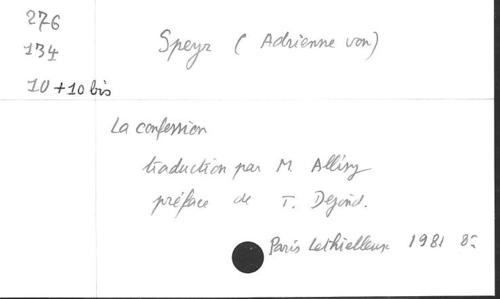 276
134
10 + 10 bis
Speyr ( Adrienne von)
La confession
traduction par M. Allisy
préface de T. Dejond.
Paris Lethielleux 1981 8º